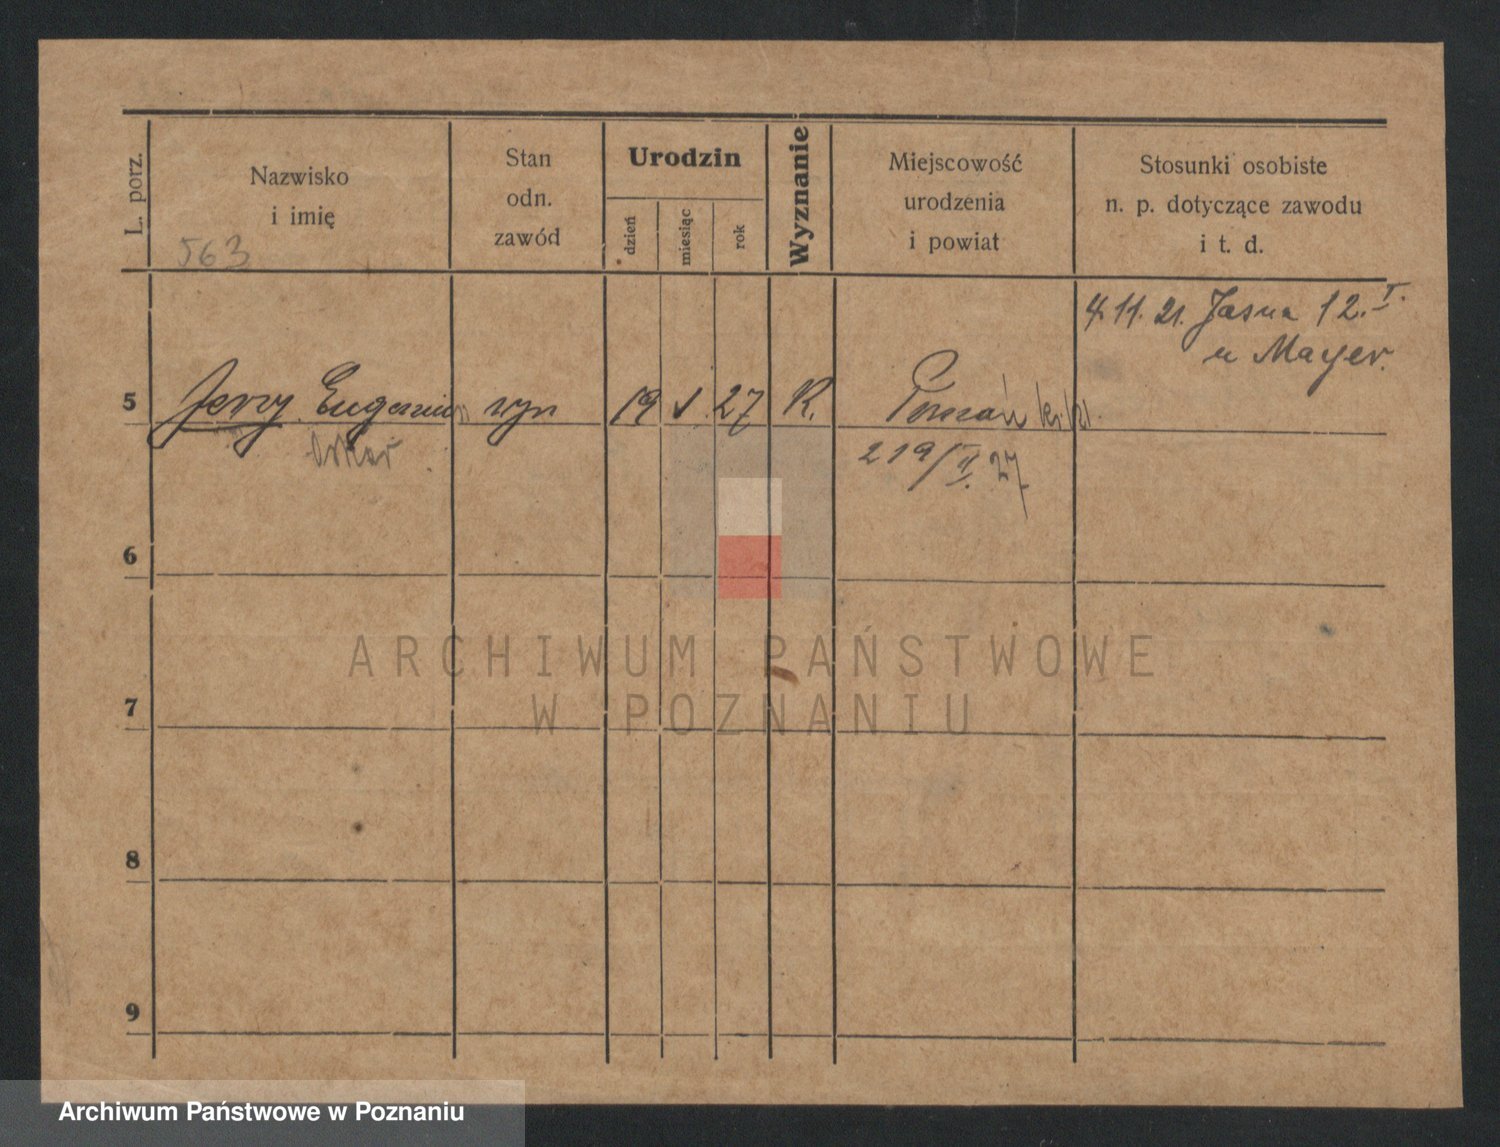 L. porz.
Nazwisko
i imię
563
Stan
odn.
zawód
Urodzin
dzień
miesiąc
rok
Wyznanie
Miejscowość
urodzenia
i powiat
Stosunki osobiste
n. p. dotyczące zawodu
i t. d.
4.11. 21. Jasna 12. I.
u Mayer.
5 Jerzy Eugeniusz syn 19 1 27 R. Poznań
Oskar
219/II. 27
6
7
8
9
ARCHIWUM PAŃSTWOWE
W POZNANIU
Archiwum Państwowe w Poznaniu